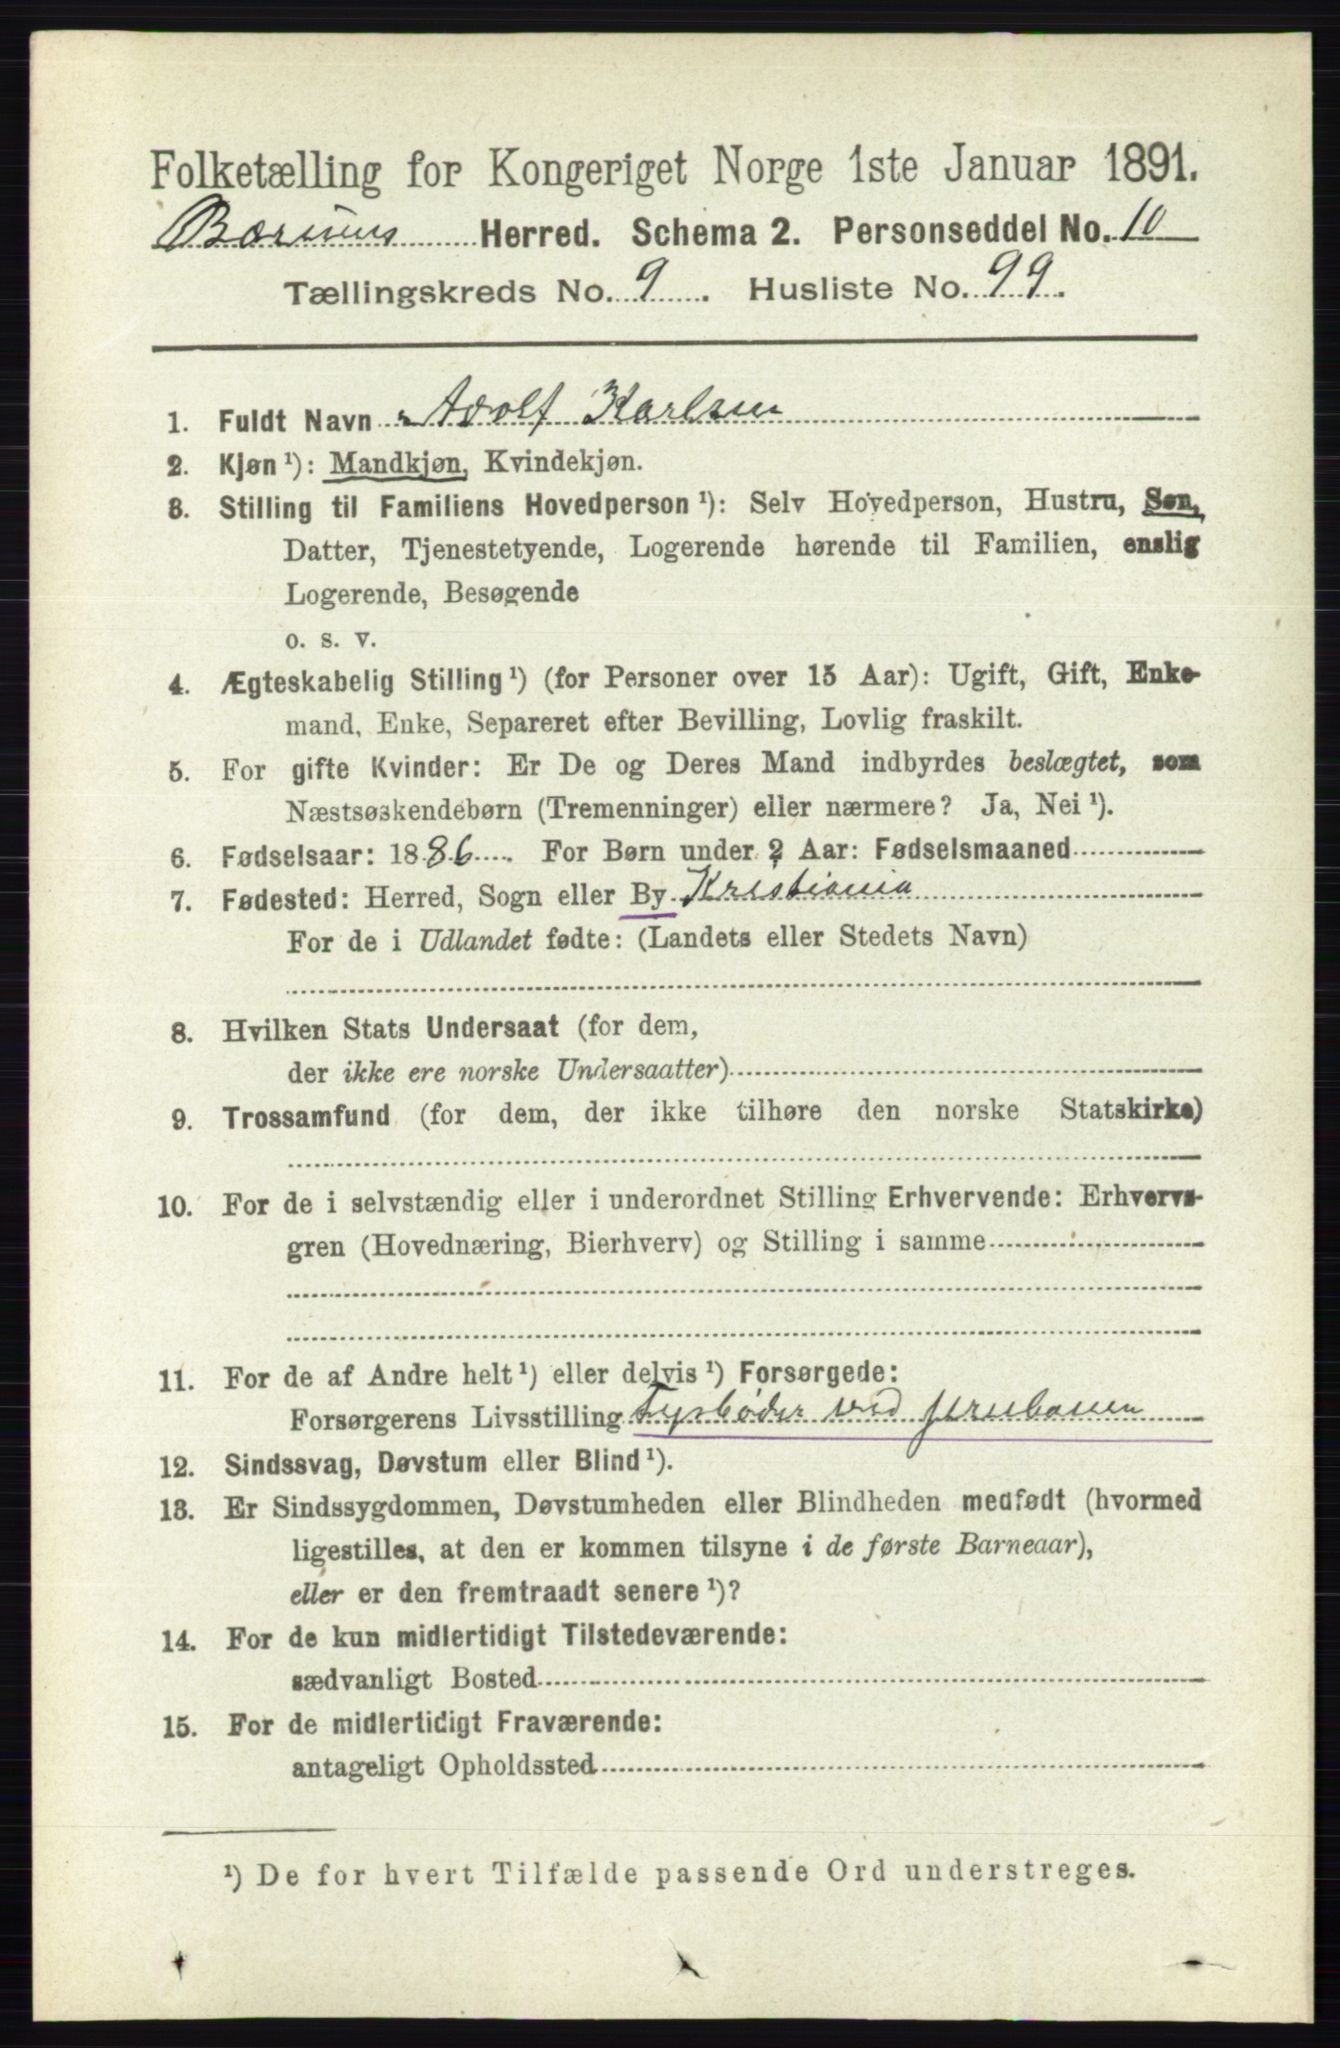 Folketælling for Kongeriget Norge 1ste Januar 1891.
Bærums Herred. Schema 2. Personseddel No. 10
Tællingskreds No. 9. Husliste No. 99.
1. Fuldt Navn Adolf Karlsen
2. Kjøn ¹): Mandkjøn, Kvindekjøn.
3. Stilling til Familiens Hovedperson ¹): Selv Hovedperson, Hustru, Søn,
Datter, Tjenestetyende, Logerende hørende til Familien, enslig
Logerende, Besøgende
o. s. v.
4. Ægteskabelig Stilling ¹) (for Personer over 15 Aar): Ugift, Gift, Enke-
mand, Enke, Separeret efter Bevilling, Lovlig fraskilt.
5. For gifte Kvinder: Er De og Deres Mand indbyrdes beslægtet, som
Næstsøskendebørn (Tremenninger) eller nærmere? Ja, Nei ¹).
6. Fødselsaar: 1886. For Børn under 2 Aar: Fødselsmaaned
7. Fødested: Herred, Sogn eller By Kristiania
For de i Udlandet fødte: (Landets eller Stedets Navn)
8. Hvilken Stats Undersaat (for dem,
der ikke ere norske Undersaatter)
9. Trossamfund (for dem, der ikke tilhøre den norske Statskirke)
10. For de i selvstændig eller i underordnet Stilling Erhvervende: Erhvervs-
gren (Hovednæring, Bierhverv) og Stilling i samme
11. For de af Andre helt ¹) eller delvis ¹) Forsørgede:
Forsørgerens Livsstilling Fyrbøder ved jernbanen
12. Sindssvag, Døvstum eller Blind ¹).
13. Er Sindssygdommen, Døvstumheden eller Blindheden medfødt (hvormed
ligestilles, at den er kommen tilsyne i de første Barneaar),
eller er den fremtraadt senere ¹)?
14. For de kun midlertidigt Tilstedeværende:
sædvanligt Bosted
15. For de midlertidigt Fraværende:
antageligt Opholdssted
¹) De for hvert Tilfælde passende Ord understreges.